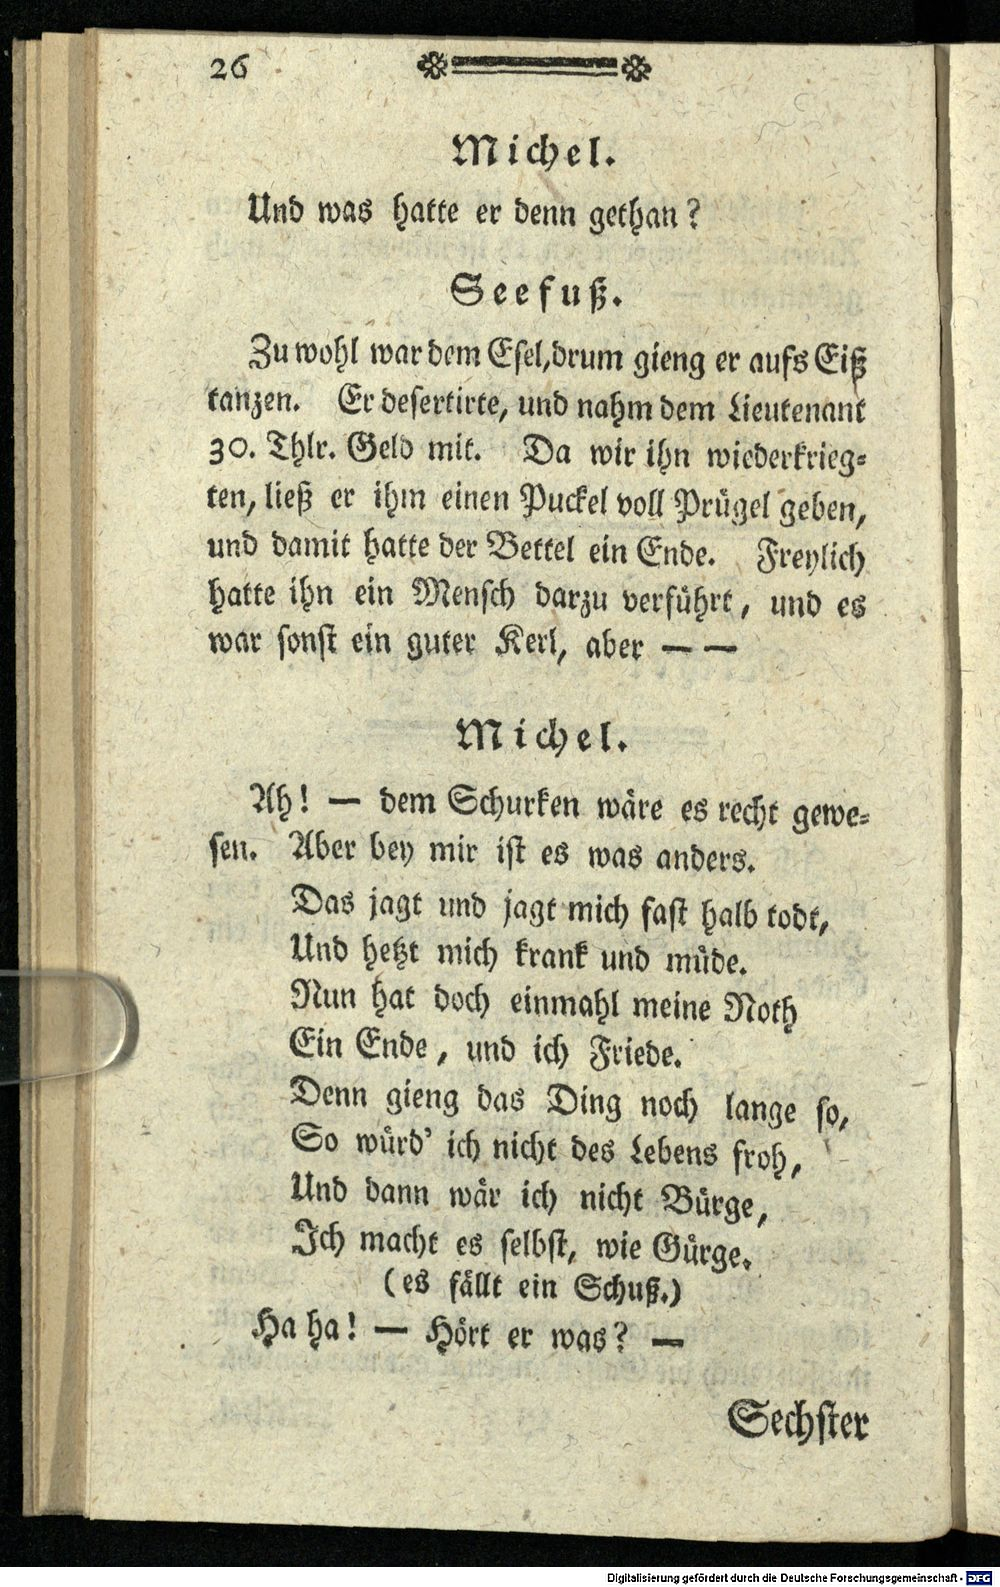 26
Michel.
Und was hatte er denn gethan?
Seefuß.
Zu wohl war dem Esel, drum gieng er aufs Eiß
tanzen. Er desertirte, und nahm dem Lieutenant
30. Thlr. Geld mit. Da wir ihn wiederkrieg-
ten, ließ er ihm einen Puckel voll Prügel geben,
und damit hatte der Bettel ein Ende. Freylich
hatte ihn ein Mensch darzu verführt, und es
war sonst ein guter Kerl, aber — —
Michel.
Ah! — dem Schurken wäre es recht gewe-
sen. Aber bey mir ist es was anders.
Das jagt und jagt mich fast halb todt,
Und hetzt mich krank und müde.
Nun hat doch einmahl meine Noth
Ein Ende, und ich Friede.
Denn gieng das Ding noch lange so,
So würd' ich nicht des Lebens froh,
Und dann wär ich nicht Bürge,
Ich macht es selbst, wie Gürge.
(es fällt ein Schuß.)
Ha ha! — Hört er was? —
Sechster
Digitalisierung gefördert durch die Deutsche Forschungsgemeinschaft - DFG